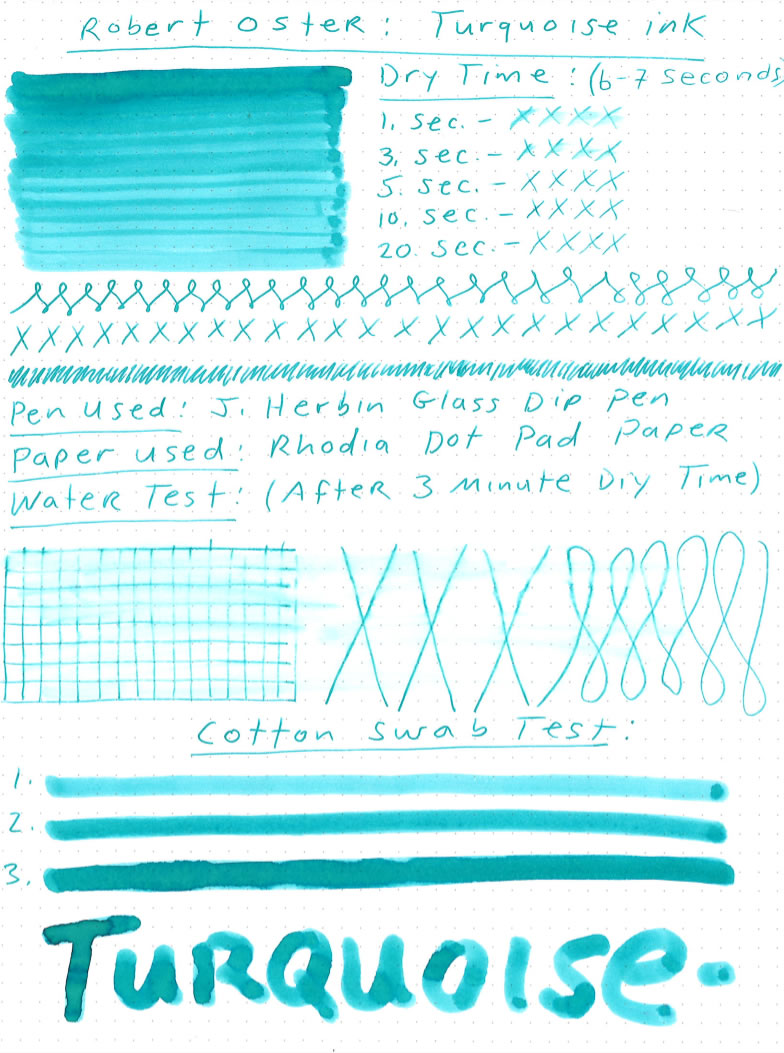 Robert Oster: Turquoise ink
Dry Time: (6-7 seconds)
1. sec. - x x x x
3. sec. - x x x x
5. sec. - x x x x
10. sec. - x x x x
20. sec. - x x x x
Pen used: J. Herbin Glass Dip Pen
Paper used: Rhodia Dot Pad Paper
Water Test: (After 3 Minute Dry Time)
Cotton Swab Test:
1.
2.
3.
Turquoise.